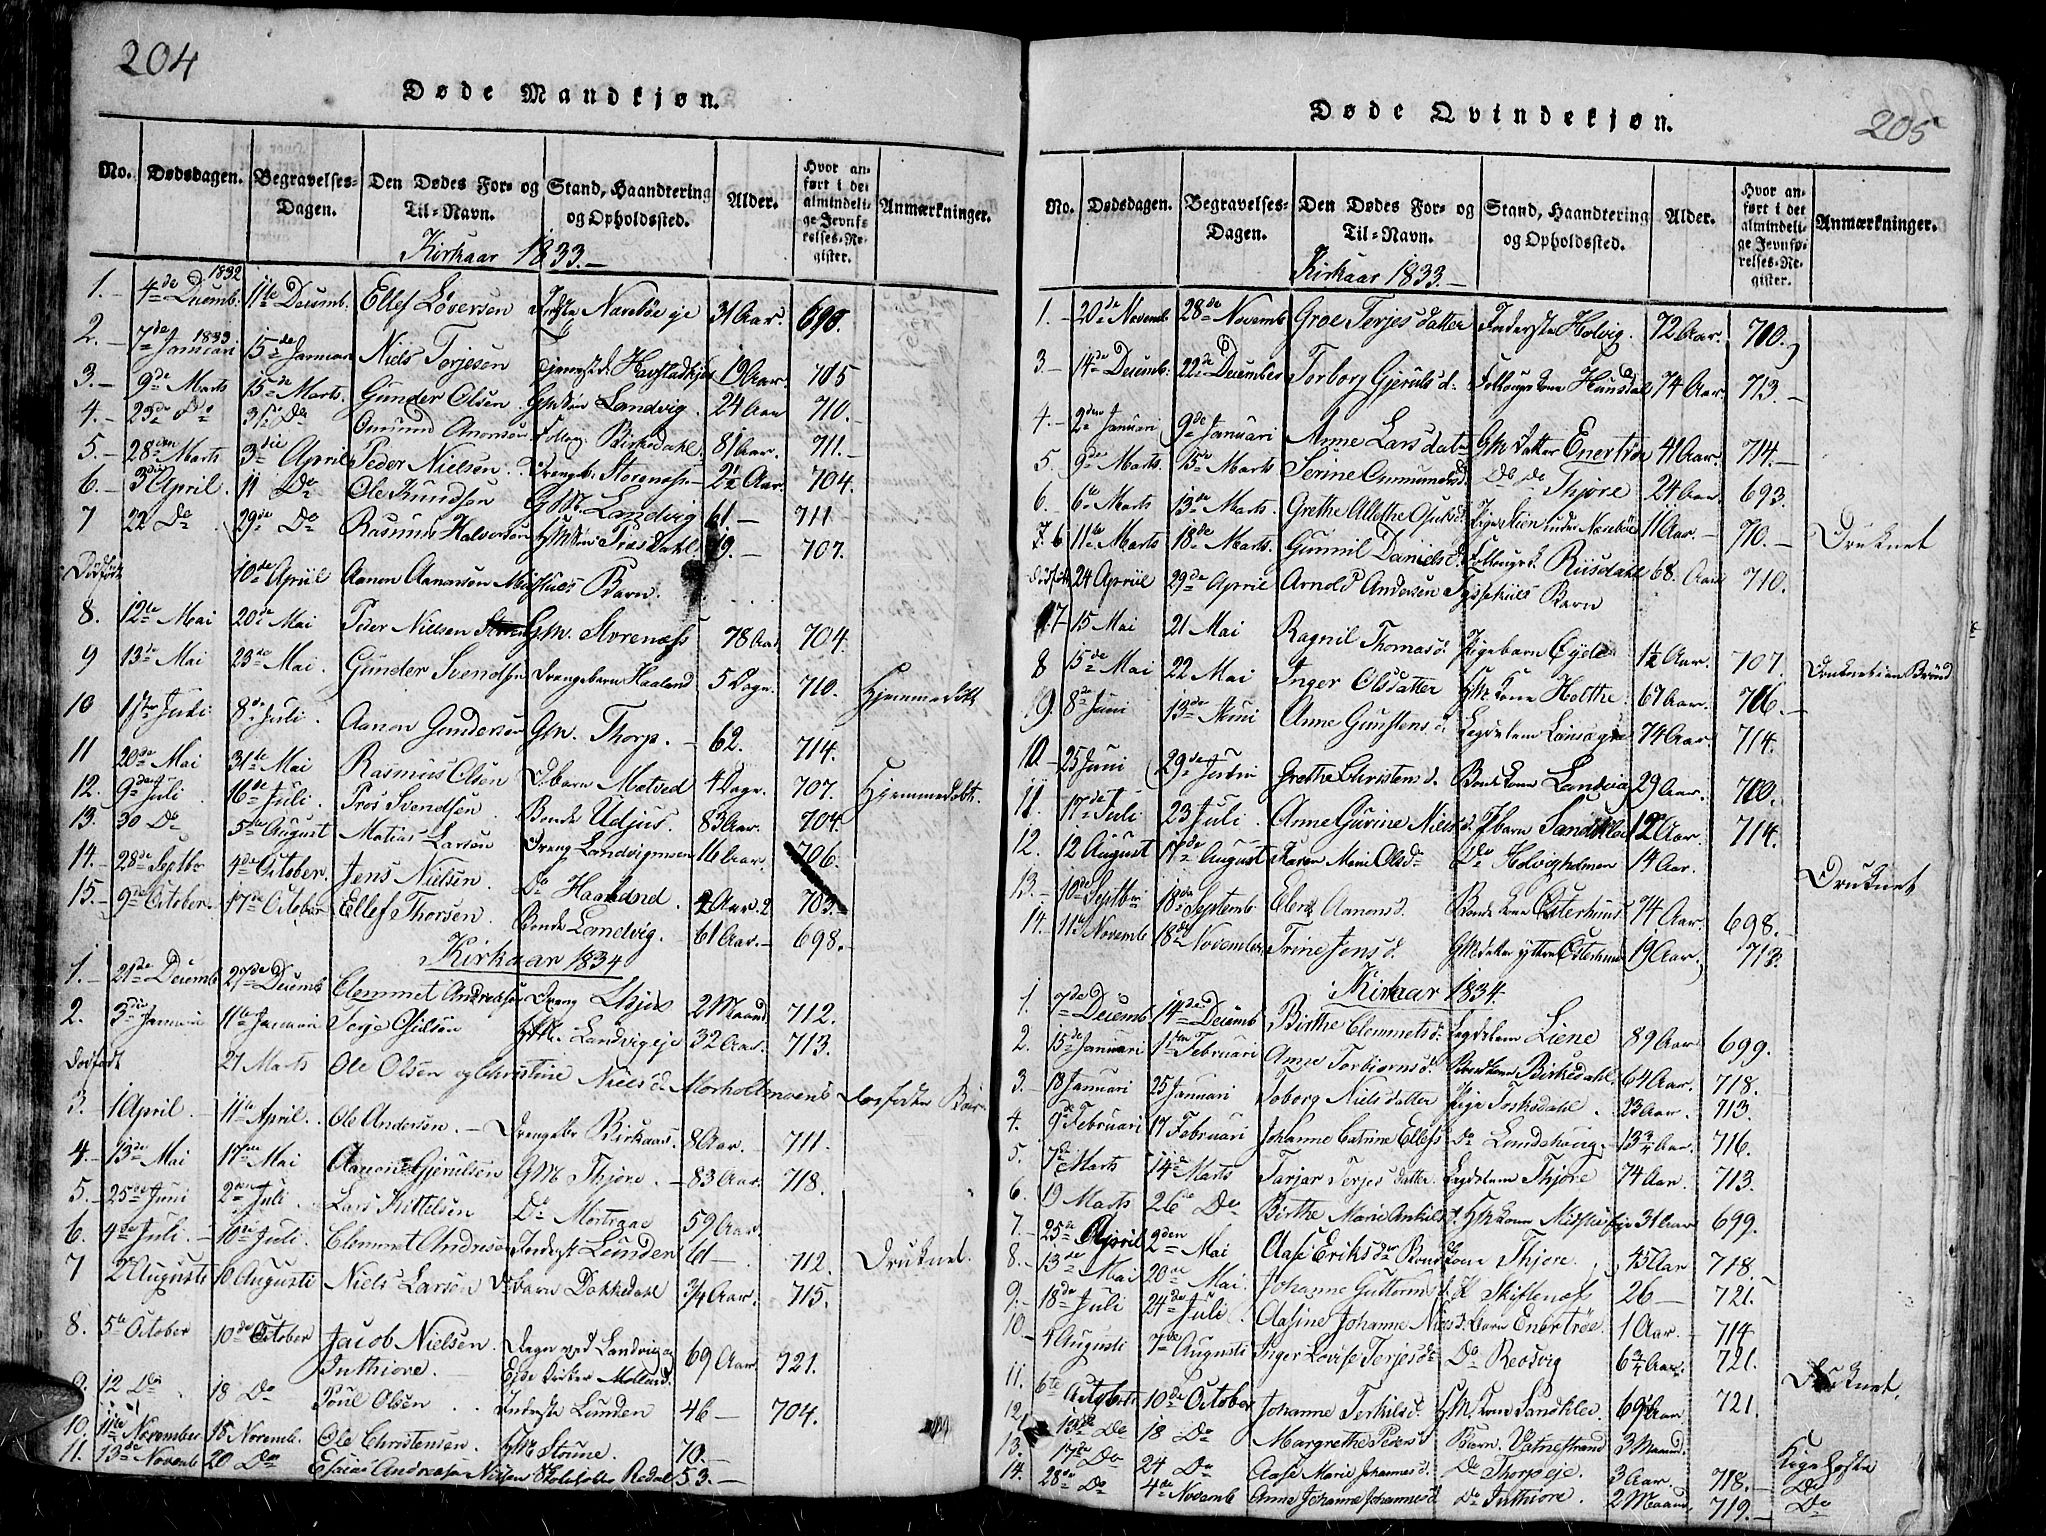 204
Døde Mandkjøn.
No. Dødsdagen. Begravelses-Dagen. Den Dødes For- og Til-Navn. Stand, Haandtering og Opholdssted. Alder. Hvor anført i det almindelige Jevnførelses-Register. Anmærkninger.
Kirkaar 1833.
1. 4de Decemb. 1832 11te Decemb. Ellef Løversen Inderste Narebøe eje 31 Aar. 690.
2. 7de Januari 1833 15de Januar Niels Torjesen 19 Aar. 705
3. 9de Marts 15de Marts. Gunder Olsen Landvig 24 Aar 710.
4. 23de Do 31te Do Omund Aanonsen Birkedahl 81 Aar. 711.
5. 28den Marts 3die April Peder Nielsen Drengeb. Storenæss 2½ Aar. 704.
6. 3die April. 11 Do Ole Knudsøn GM. Landvig 61.
7 22 Do 29de Do Rasmus Halvorsøn Trosdahl 19. 707.
Dødfødt 10de April Aanon Aanonsøn Barn.
8. 12te Mai 20de Mai Peder Nielsen GM. Storenæss 78 Aar 704.
9 13de Mai 23de Mai. Gunder Svendsøn Drengebarn Haaland 5 Dage. 710. Hjemmedøbt
10 1ste Juli 8de Juli. Aanon Gundersen GM. Thorp. 62. 714.
11 20de Mai 31te Mai Rasmus Olsen Dbarn Mætved 4 Dage. 707. Hjemmedøbt.
12. 9de Juli 16de Juli. Tros Svendsen Bonde Udjus. 83 Aar. 704.
13. 30 Do 5te August Matias Larsen Dreng Landvigmoen 16 Aar. 706.
14. 28de Septbr 4de October. Jens Nielsen. Do Haaland. 2 Aar. 703.
15. 9de October. 17de October Ellef Thorsen. Bonde Landvig. 61 Aar. 698.
Kirkaar 1834
1. 21de Decemb 27de Decemb Clemmet Andreasøn Dreng Udjus 2 Maaned 712.
2. 3die Januari 11te Januari Terje Gjelsøn Landvig eje 32 Aar. 713.
Dødfødt 27 Marts Ole Olsen og Christine Nielsd. Morholtmoens Barn
3. 1 April 11te April. Ole Andersen. Drengebr Birkaas. 8 Aar. 711.
4. 13de Mai 17de Mai Aanon Gjerulsen GM Thjøre. 83 Aar. 718.
5. 25de Juni 2den Juli. Lars Kittelsen Do 59 Aar.
6. 4de Juli. 10de Juli. Clemmet Andreasen Inderst Lunden 61 712. Druknet.
7 2de Augusti 10 Augusti Niels Larsen Dbarn Dokkedahl 3/4 Aar. 715.
8. 5te October 10de October Jacob Nielsen Inthiore. 69 Aar 721.
9. 12 Do 18 Do Poul Olsen Inderste Lunden 46 704.
10. 11te November 18 Novemb. Ole Christensen. 70.
11. 13de Novemb 20 Do Esaias Andreasen Nielsen Skoleholder Redal 53.
205
Døde Qvindekjøn.
No. Dødsdagen. Begravelses-Dagen. Den Dødes For- og Til-Navn. Stand, Haandtering og Opholdssted. Alder. Hvor anført i det almindelige Jevnførelses-Register. Anmærkninger.
Kirkaar 1833.
1. 20de Novemb 28de Novemb Groe Terjesdatter Inderste Holvig. 72 Aar. 700.
3. 14de Decemb. 22de December Torborg Gjeruls d. 74 Aar. 713.
4. 2den Januari 9de Januari Anne Larsdat GM datter Enertrøe 41 Aar. 714.
5. 9de Marts. 15de Marts Serine Gunmundsd Do do Thjøre 24 Aar. 693.
6. 6te Marts 13de Marts. Grethe Alethe 11 Aar. 710. Druknet
7. 6 11te Marts 18de Marts. Gunnil Daniels d. Riisdahl 68. Aar 710.
Dødfødt 24 April 29de April Arnold Andersen Barn
7 15 Mai 21 Mai Ragnil Thomas d. Pigebarn Eyde 1½ Aar. 707. Druknet i en Brønd
8 15de Mai 22 Mai Inger Olsdatter Kone Holthe. 67 Aar. 706.
9. 8de Juni 13de Juni Anne Gunstens d. Legdelem 74 Aar. 714.
10. 25 Juni 29de Juni Grethe Christens d. Bondekone Landvig 29 Aar. 700.
11. 17de Juli 23 Juli. Anne Gurine Niels d. Barn Sandkleo 12 Aar. 714.
12. 12 August 17de August Karen Marie Olsd. Do Holvigholmen 14 Aar. Druknet
13. 10de Septbr 18de Septemb Elen Aanons d. Bondekone Østerhuus 74 Aar. 698.
14. 11te Novemb 18de November Trine Jens d. GM datter ytre Østerhuus 19 Aar. 713.
Kirkaar 1834.
1. 7de Decemb 14de Decemb Birthe Clemmets d. Legdelem Liene 89 Aar 699.
2. 15de Januari 1ste Februari Anne Torbiørns d. Birkedahl. 64 Aar. 718.
3. 18 Januari 25 Januari Toborg Nielsdatter Pige Toskedahl. 23 Aar. 713.
4. 9de Februari 17 Februari Johanne Catrine Ellefs d. Do Landshaug. 13¾ Aar. 716.
5. 7de Marts 14de Marts Tarjær Terjesdatter. Legdelem Thjøre 74 Aar. 713.
6. 19 Marts 26 Do Birthe Marie 31 Aar 699.
7. 25de April 2den Mai Aase Eriks der Bondekone Thjøre. 45 Aar 718.
8. 13de Mai 20de Mai. Johanne Guttorms d. Skiftenæs 26 721.
9. 18de Juli 24de Juli Aasine Johanne Niels d. Barn Enertrøe. 1 Aar. 714
10. 4 Augusti 7de Augusti Inger Lovise Terjesd. Do Reosvig 6¾ Aar. 721. Druknet.
11. 6te October 10de October Johanne Terkils d. Kone Sandkleo. 69 Aar 721.
12. 13de Do 18 Do Margrethe Peders d Barn. Vatnestrand 3 Maaned.
13. 17de Do 24 Do Aase Marie Johannes d. Do Thorp eje. 3 Aar 718. Kighoste
14. 28de Do 4de Novemb Anne Johanne Johannes d Do Inthiore. 2 Maaned. 719. Do